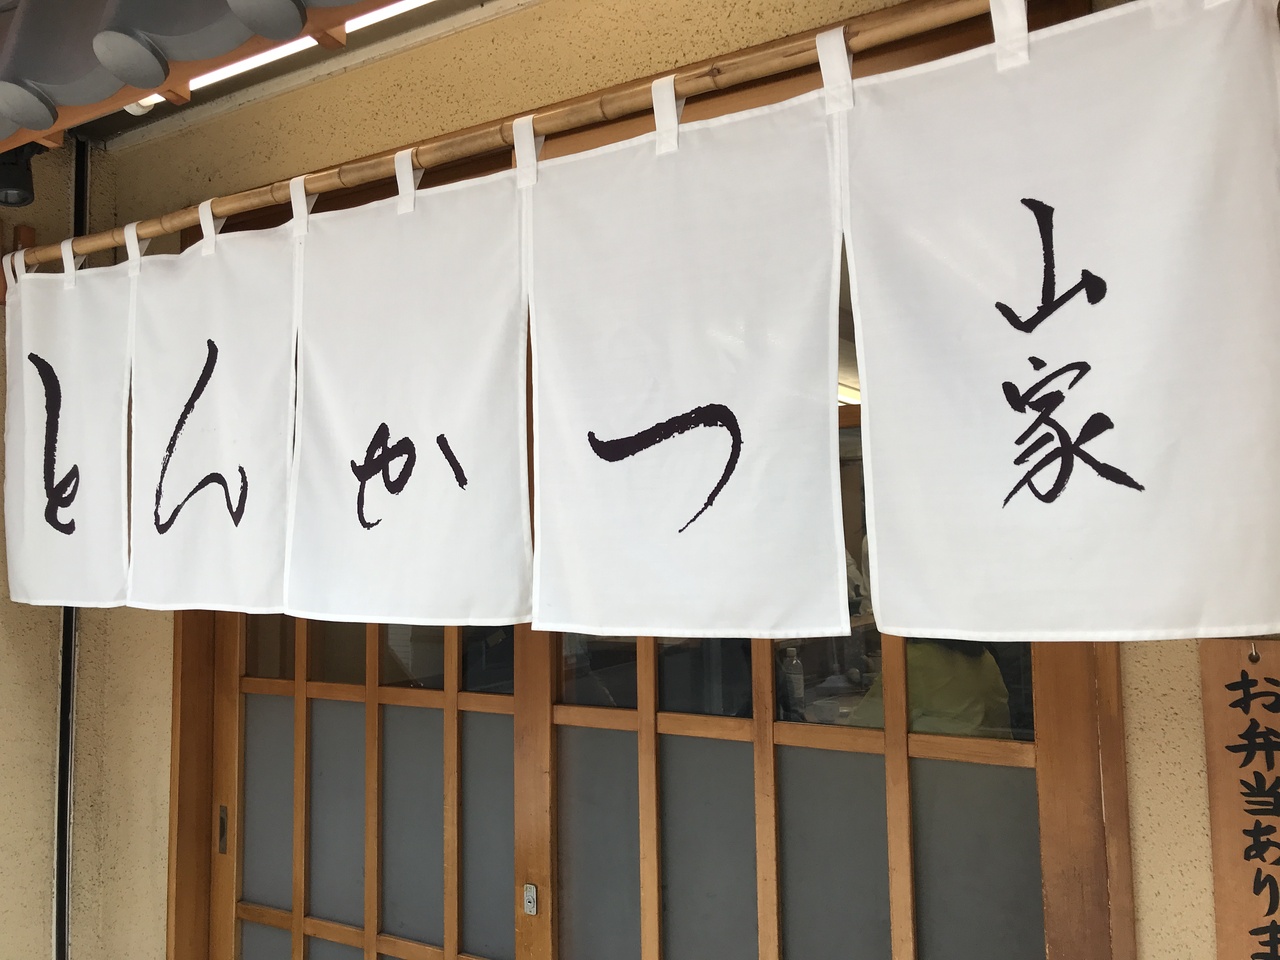 とんかつ
山家
お弁当ありま